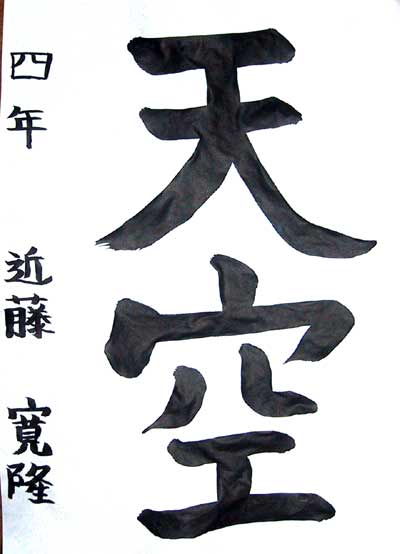 天空
四年 近藤 寛隆